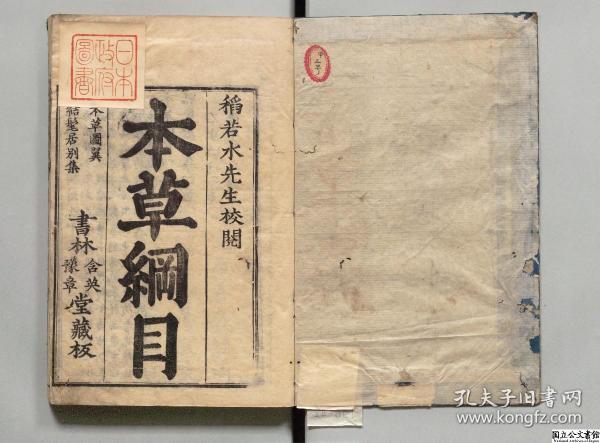 稻若水先生校閱
本草綱目
本草圖翼
結髦居別集
書林
含英
豫章
堂藏板
日本
政府
圖書
孔夫子旧书网
www.kongfz.com
国立公文書館